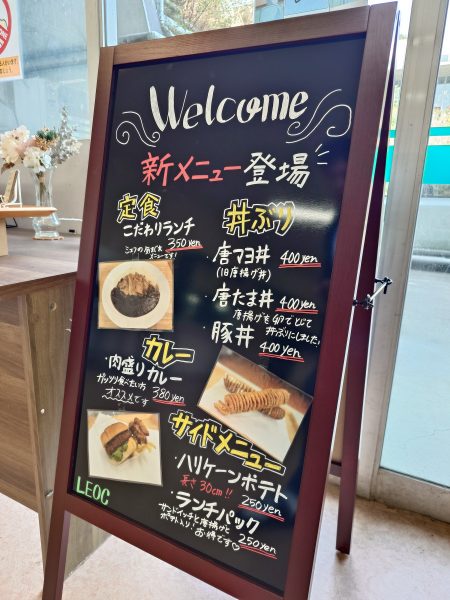 Welcome
新メニュー登場
定食
こだわりランチ
350yen
メニューです!
カレー
・肉盛りカレー
ガッツリ食べたい方
オススメです
380yen
丼ぶり
・唐マヨ丼 400yen
(旧唐揚げ丼)
・唐たま丼 400yen
唐揚げを卵でとじて
丼ぶりにしました!
・豚丼 400yen
サイドメニュー
・ハリケーンポテト
長さ30cm!! 250yen
・ランチパック
サンドイッチと唐揚げと
ポテト入り!お得です♡ 250yen
LEOC